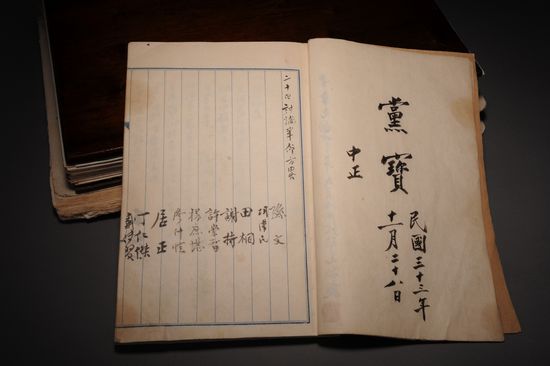 黨寶
民國三十三年
十一月二十八日
中正
二十 討論革命方畧
孫文
胡漢民
田桐
謝持
許崇智
楊庶堪
廖仲愷
居正
丁仁傑